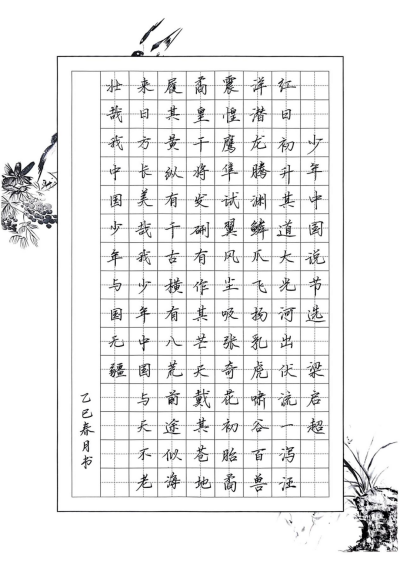 少年中国说节选 梁启超
红日初升其道大光河出伏流一泻汪
洋潜龙腾渊鳞爪飞扬乳虎啸谷百兽
震惶鹰隼试翼风尘吸张奇花初胎矞
矞皇干将发硎有作其芒天戴其苍地
履其黄纵有千古横有八荒前途似海
来日方长美哉我少年中国与天不老
壮哉我中国少年与国无疆
乙巳春月书